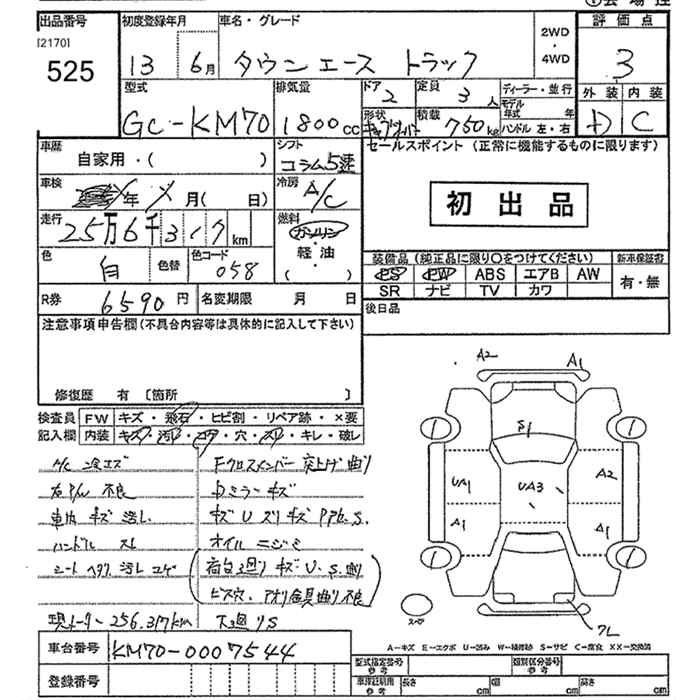 出品番号 初度登録年月 車名・グレード 評価点
[2170] 2WD
525 13 6月 タウンエース トラック ・ 3
4WD
型式 排気量 ドア 定員 ディーラー・並行 外装 内装
2 3人 モデル年式 年 D C
GC-KM70 1800cc 形状 積載 750kg ハンドル 左・右
車歴 シフト セールスポイント (正常に機能するものに限ります)
自家用・( ) コラム5速
車検 冷房 初出品
年 月(日) A/C
走行 燃料
25万6千317km ガソリン
軽油 装備品 (純正品に限り○をつけてください) 新車保証書
色 色替 色コード ( ) PS PW ABS エアB AW 有・無
白 058 SR ナビ TV カワ
R券 6590円 名変期限 月 日 後日品
注意事項申告欄 (不具合内容等は具体的に記入して下さい)
修復歴 有 〔箇所 〕
A2 A1
検査員 FW キズ・飛石・ヒビ割・リペア跡・×要
記入欄 内装 キズ・汚レ・コゲ・穴・スレ・キレ・破レ
S1
A/C Fクロスメンバー 突上げ曲り
右P/W 不良 Dミラーキズ
UA1 UA3 A2
車内 キズ 汚レ キズ U ズリキズ S.
A1 A1
ハンドル スレ オイルニジミ
シート 汚レ コゲ 荷台 キズ U. S. 曲り
ビス穴 アオリ金具曲り不良
現メーター 256.317km 下廻りS
スペア
車台番号 KM70-0007544
A-キズ E-エクボ U-凹み W-補修跡 S-サビ C-腐食 XX-交換済
登録番号
型式指定番号 参考 類別区分番号 参考
車庫証明用 参考 長さ cm 幅 cm 高さ cm